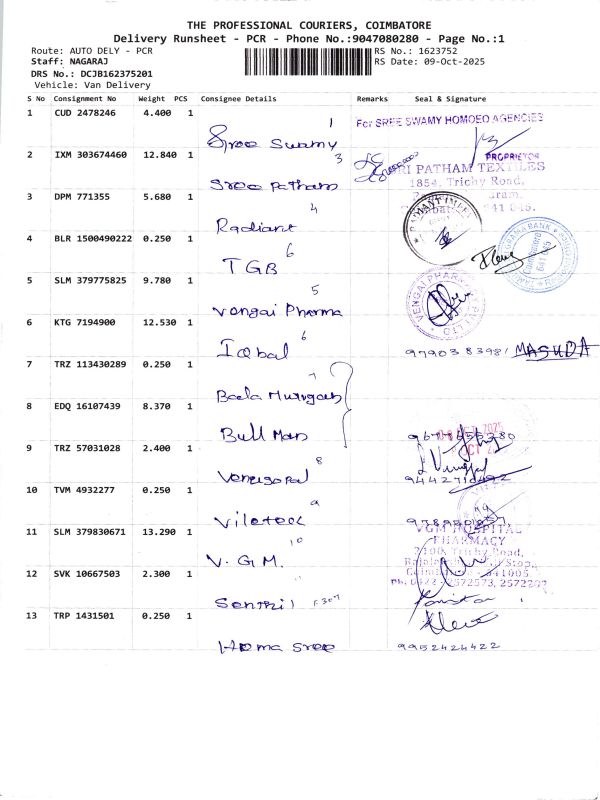 THE PROFESSIONAL COURIERS, COIMBATORE
Delivery Runsheet - PCR - Phone No.:9047080280 - Page No.:1
Route: AUTO DELY - PCR RS No.: 1623752
Staff: NAGARAJ RS Date: 09-Oct-2025
DRS No.: DCJB162375201
Vehicle: Van Delivery
S No Consignment No Weight PCS Consignee Details Remarks Seal & Signature
1 CUD 2478246 4.400 1
1
For SREE SWAMY HOMOEO AGENCIES
Sree Swamy
PROPRIETOR
2 IXM 303674460 12.840 1
3
SRI PATHAM TEXTILES
1854, Trichy Road,
Sree Patham
3 DPM 771355 5.680 1
4
641 045.
Radiant
4 BLR 1500490222 0.250 1
6
TGB
5 SLM 379775825 9.780 1
5
VENGAI PHARMA
Vengai Pharma
6 KTG 7194900 12.530 1
6
Iqbal
9790383981 MASUDA
7 TRZ 113430289 0.250 1
7
Baela Murugan
8 EDQ 16107439 8.370 1
Bull Man
9 TRZ 57031028 2.400 1
8
Venugopal
10 TVM 4932277 0.250 1
9
11 SLM 379830671 13.290 1
10
VGM HOSPITAL
PHARMACY
2100, Trichy Road,
V. G. M.
12 SVK 10667503 2.300 1
11
Coimbatore - 641005
Ph: 0422 - 2572573,
Senthil F307
13 TRP 1431501 0.250 1
Hema Sree
9952424422